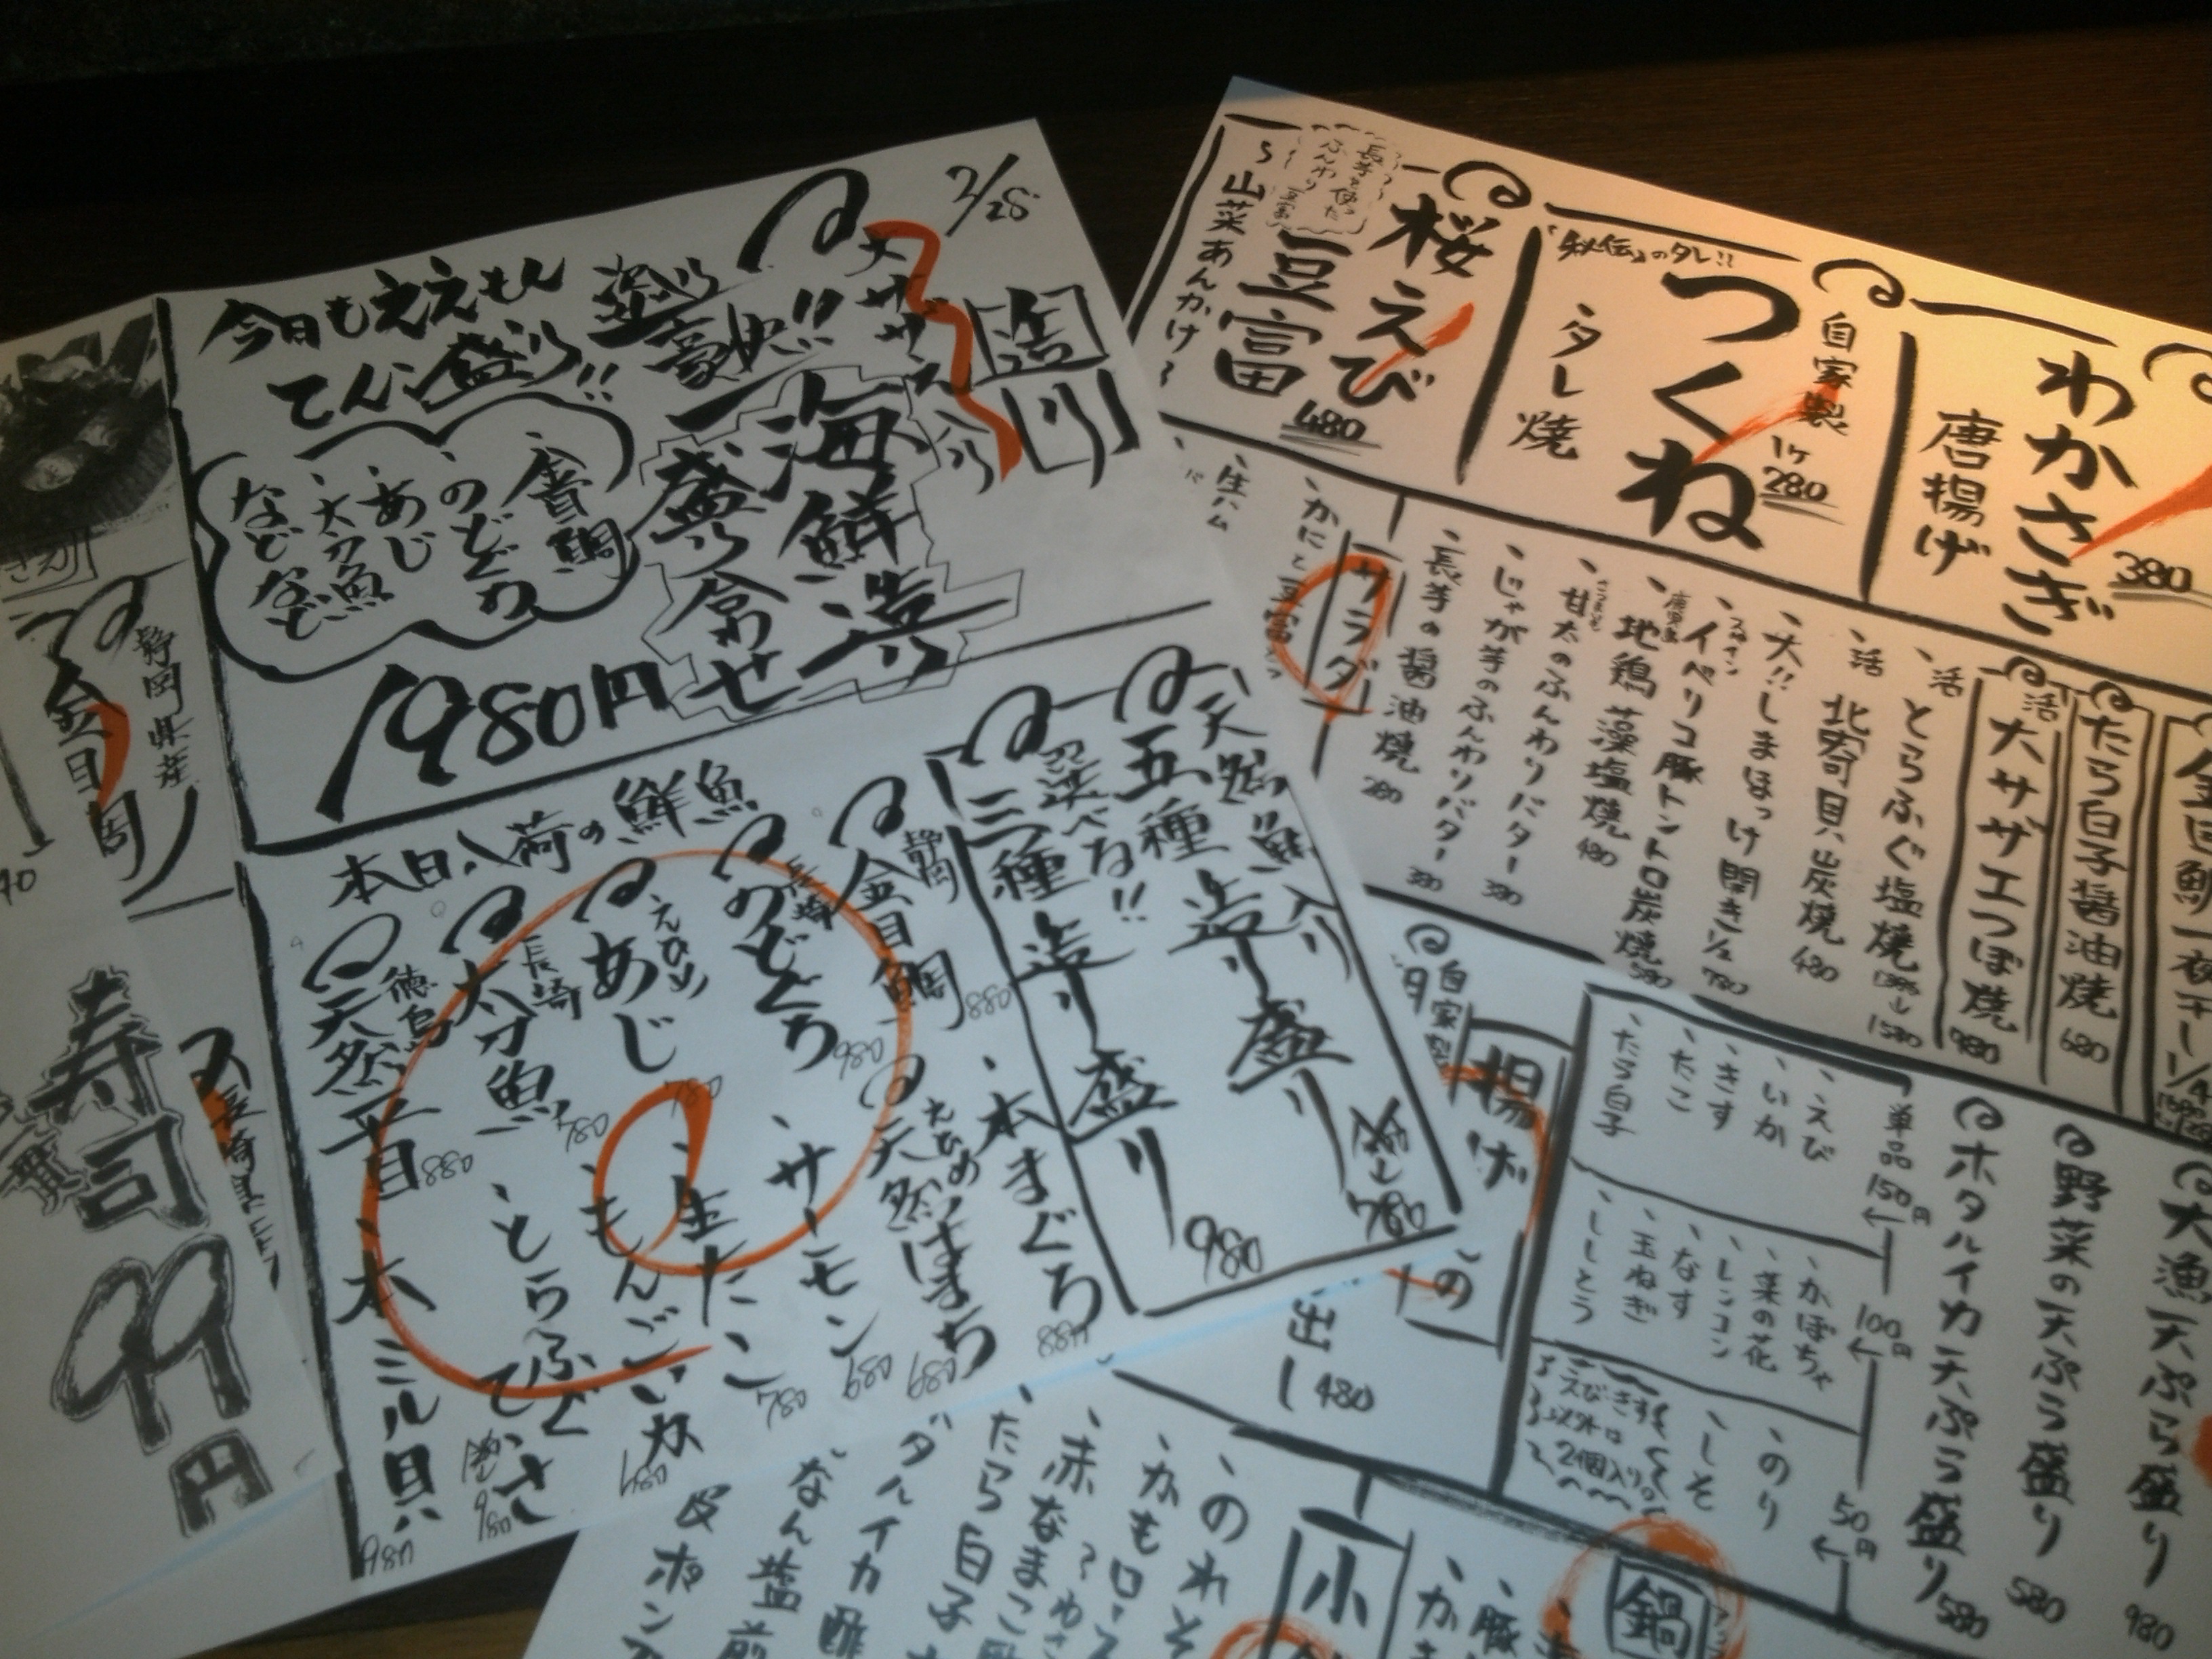 2/28
造り
今日もええもん
てんこ盛り!!
豪快!!
海鮮造り
盛り合わせ
金目鯛
のどぐろ
あじ
太刀魚
などなど
1980円
天然鮮魚入り
五種造り盛り
三種造り盛り
980
780
本日入荷の鮮魚
静岡
金目鯛
880
長崎
のどぐろ
980
えひめ
あじ
780
長崎
太刀魚
780
徳島
天然平目
880
、本まぐろ
880
えひめ
天然はまち
680
、サーモン
680
、生たこ
780
、もんごいか
680
、とらふぐてっさ
980
、本ミル貝
980
静岡県産
寿司
99円
わかさぎ
唐揚げ
380
自家製
つくね
1ケ
280
「秘伝」のタレ!!
タレ焼
桜えび
豆富
480
長芋を使った
ふんわり
豆富
~山菜あんかけ~
たら白子醤油焼
680
活
大サザエつぼ焼
980
、活とらふぐ塩焼
1580
、活北寄貝炭焼
480
、大!!しまほっけ開き1/2
780
、イベリコ豚トントロ炭焼
580
、地鶏藻塩焼
480
、甘太のふんわりバター
380
、じゃが芋のふんわりバター
380
、長芋の醤油焼
280
サラダ
、かにと豆富
、生ハム
大漁天ぷら盛り
980
野菜の天ぷら盛り
580
ホタルイカ天ぷら盛り
580
単品
150円
、えび
、いか
、きす
、たこ
、たら白子
100円
、かぼちゃ
、菜の花
、レンコン
、なす
、玉ねぎ
、ししとう
50円
、のり
、しそ
えびきす
以外は
2個入り
自家製
揚げ
出し
480
鍋
小
、のれそ
、かもロース
、赤なまこ
たら白子
ホタルイカ酢
なん
塩
皮ポン